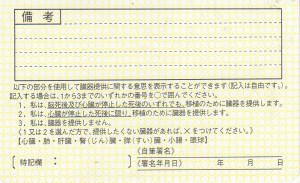 備考
以下の部分を使用して臓器提供に関する意思を表示することができます(記入は自由です。)。
記入する場合は、1から3までのいずれかの番号を○で囲んでください。
1. 私は、脳死後及び心臓が停止した死後のいずれでも、移植のために臓器を提供します。
2. 私は、心臓が停止した死後に限り、移植のために臓器を提供します。
3. 私は、臓器を提供しません。
(1又は2を選んだ方で、提供したくない臓器があれば、×をつけてください。)
【心臓・肺・肝臓・腎(じん)臓・膵(すい)臓・小腸・眼球】
〔特記欄: 〕
《自筆署名》
《署名年月日》 年 月 日